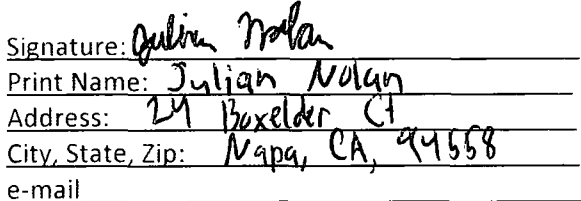 Signature: Julian Nolan
Print Name: Julian Nolan
Address: 24 Boxelder Ct
City, State, Zip: Napa, CA, 94558
e-mail